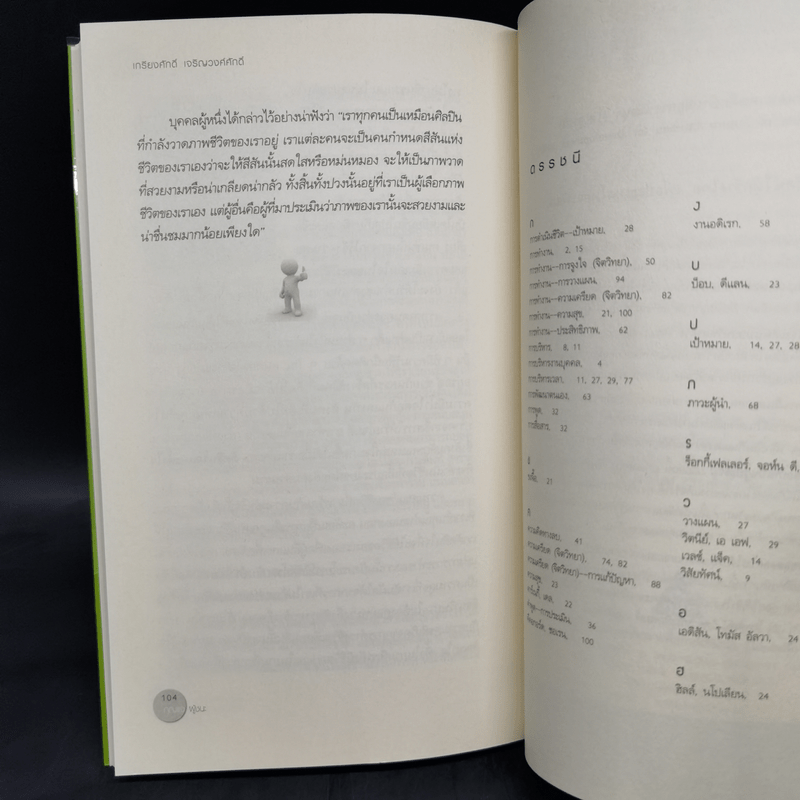 เกรียงศักดิ์ เจริญวงศ์ศักดิ์
บุคคลผู้หนึ่งได้กล่าวไว้อย่างน่าฟังว่า “เราทุกคนเป็นเหมือนศิลปิน
ที่กำลังวาดภาพชีวิตของเราอยู่ เราแต่ละคนจะเป็นคนกำหนดสีสันแห่ง
ชีวิตของเราเองว่าจะให้สีสันนั้นสดใสหรือหม่นหมอง จะให้เป็นภาพวาด
ที่สวยงามหรือน่าเกลียดน่ากลัว ทั้งสิ้นทั้งปวงนั้นอยู่ที่เราเป็นผู้เลือกภาพ
ชีวิตของเราเอง แต่ผู้อื่นคือผู้ที่มาประเมินว่าภาพของเรานั้นจะสวยงามและ
น่าชื่นชมมากน้อยเพียงใด”
104
ดรรชนี
ก
การดำเนินชีวิต--เป้าหมาย, 28
การทำงาน, 2, 15
การทำงาน--การจูงใจ (จิตวิทยา), 50
การทำงาน--การวางแผน, 94
การทำงาน--ความเครียด (จิตวิทยา), 82
การทำงาน--ความสุข, 21, 100
การทำงาน--ประสิทธิภาพ, 62
การบริหาร, 8, 11
การบริหารงานบุคคล, 4
การบริหารเวลา, 11, 27, 29, 77
การพัฒนาตนเอง, 63
การพูด, 32
การสื่อสาร, 32
21
ความคิดทางลบ, 41
ความเครียด (จิตวิทยา), 74, 82
ความเครียด (จิตวิทยา)--การแก้ปัญหา, 88
ความสุข, 23
22
--การประเมิน, 36
100
ง
งานอดิเรก, 58
บ
บ๊อบ, ดีแลน, 23
ป
เป้าหมาย, 14, 27, 28
ภ
ภาวะผู้นำ, 68
ร
ร็อกกี้เฟลเลอร์, จอห์น ดี,
ว
วางแผน, 27
วิตนีย์, เอ เอฟ, 29
เวลช์, แจ็ค, 14
วิสัยทัศน์, 9
อ
เอดิสัน, โทมัส อัลวา, 24
ฮ
ฮิลล์, นโปเลียน, 24